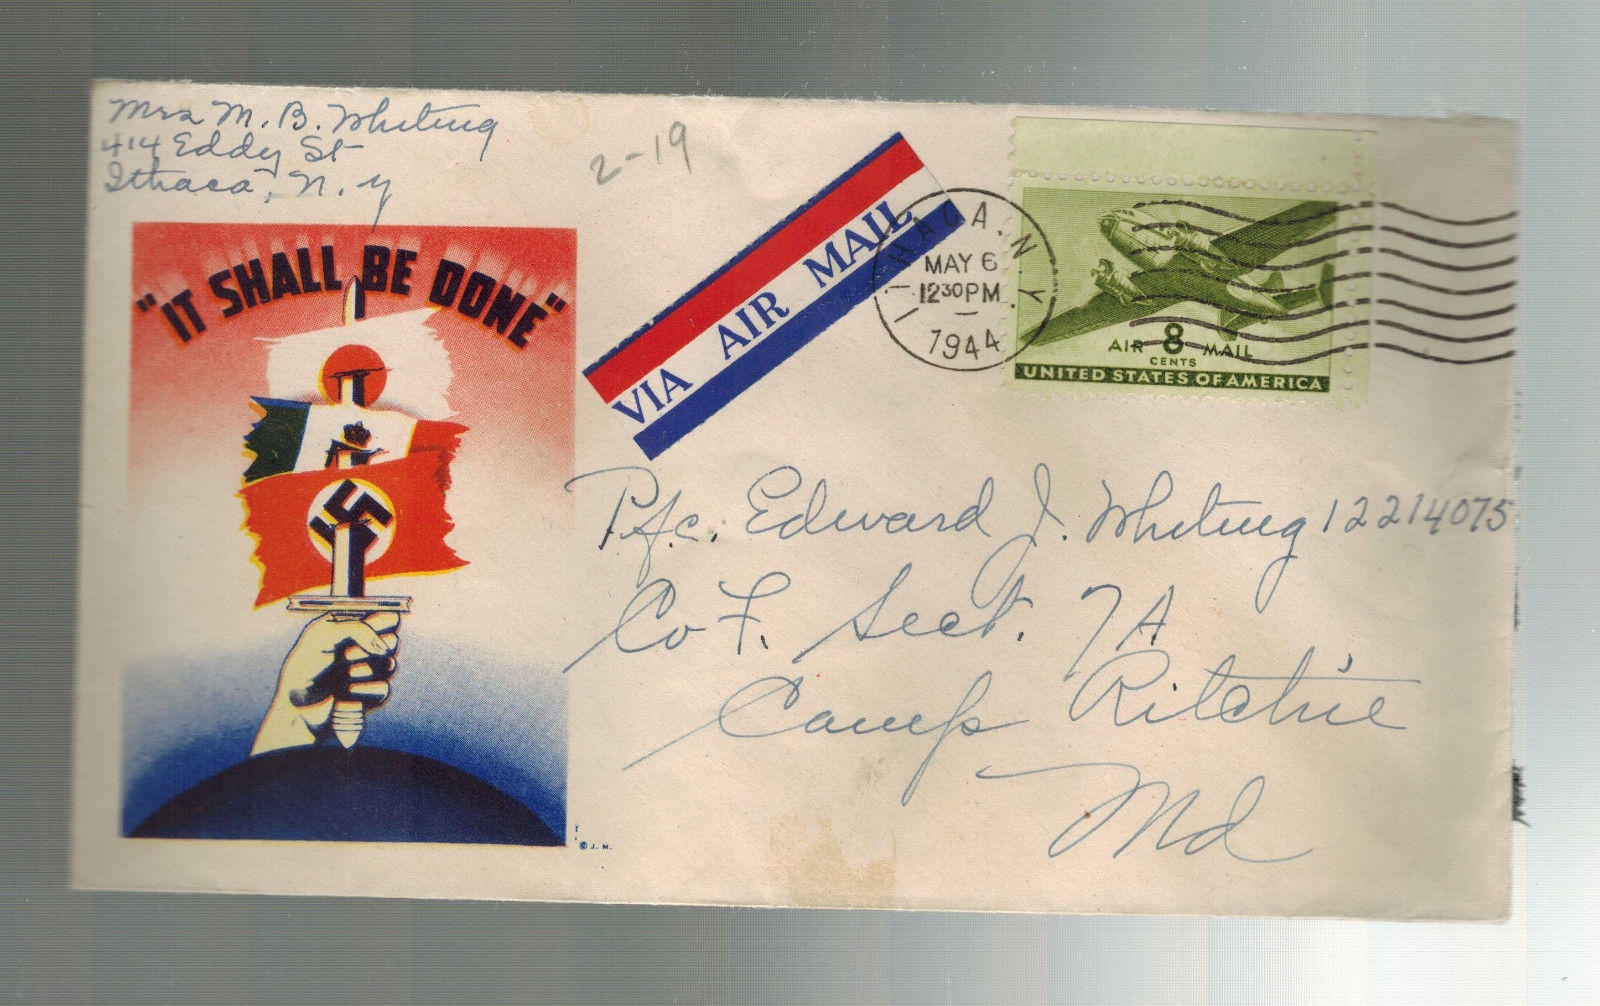 Mrs M. B. Whiting
414 Eddy St
Ithaca, N. Y
2-19
"IT SHALL BE DONE"
VIA AIR MAIL
ITHACA. N. Y.
MAY 6
12 30 PM
1944
AIR 8 MAIL
CENTS
UNITED STATES OF AMERICA
P.f.c. Edward J. Whiting 12214075
Co F. Sect. 7A
Camp Ritchie
Md
© J. M.